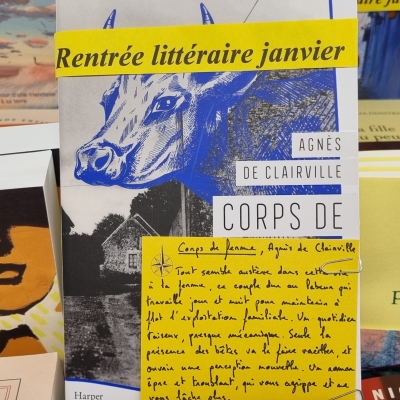 Rentrée littéraire janvier
AGNÈS
DE CLAIRVILLE
CORPS DE
Corps de ferme, Agnès de Clairville
Tout semble austère dans cette vie
à la ferme, ce couple dur au labeur qui
travaille jour et nuit pour maintenir à
flot l'exploitation familiale. Un quotidien
taiseux, presque mécanique. Seule la
présence des bêtes va le faire vaciller, et
ouvrir une perception nouvelle. Un roman
âpre et troublant, qui vous agrippe et ne
vous lâche plus.
Harper
la fille